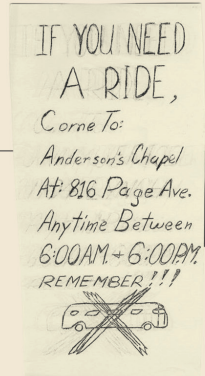 IF YOU NEED
A RIDE,
Come To:
Anderson's Chapel
At: 816 Page Ave.
Anytime Between
6:00 A.M. + 6:00 P.M.
REMEMBER!!!